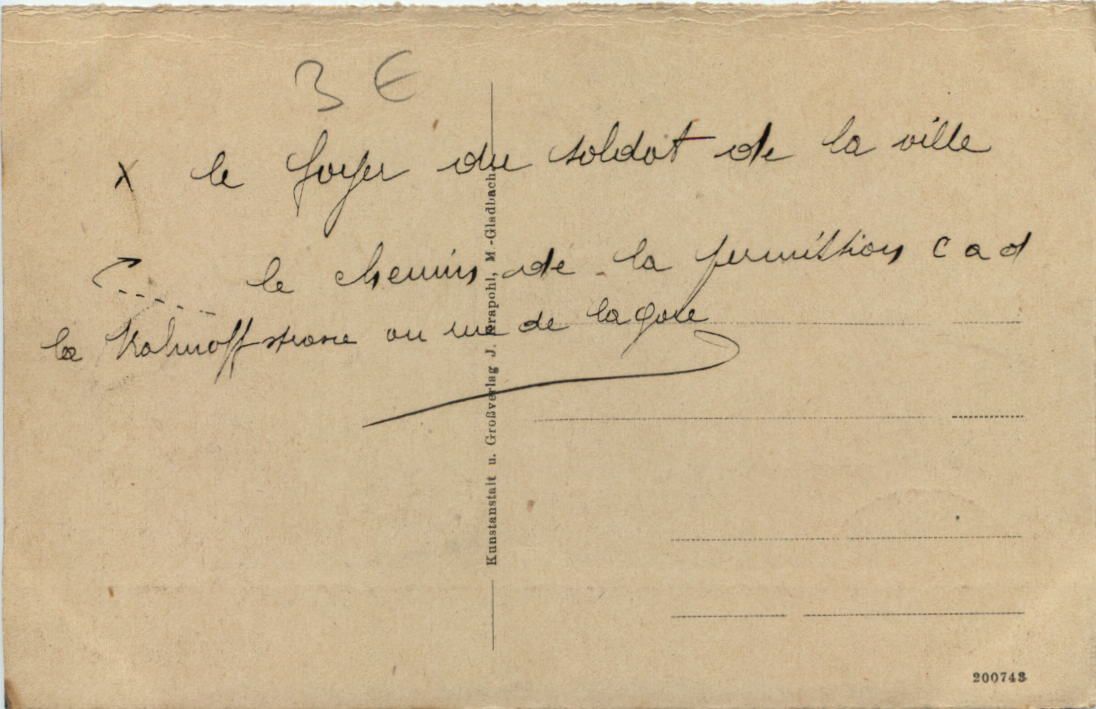 3 €
X le foyer du soldat de la ville
le chemin de la permission c a d
la Kalnoffstrasse ou rue de la gare
Kunstanstalt u. Großverlag J. Krapohl, M.-Gladbach.
200743